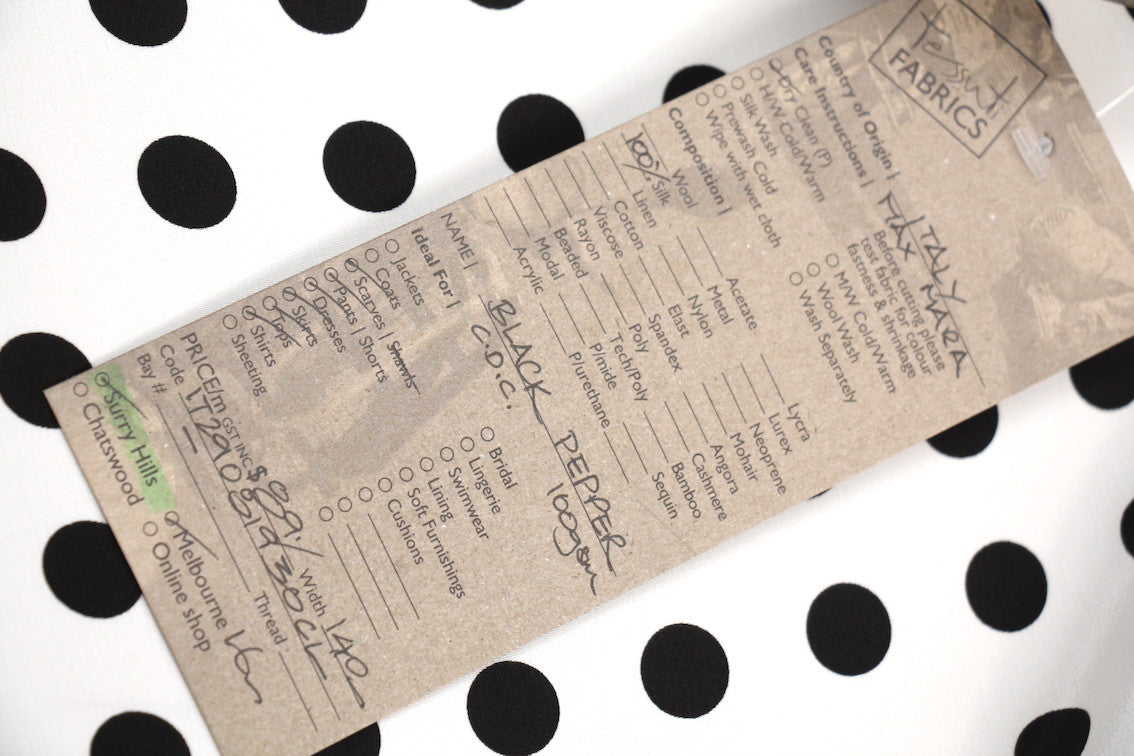 Tessuti
FABRICS
Country of Origin | ITALY
Care Instructions | MAX MARA
Dry Clean (P)
H/W Cold/Warm
Silk Wash
Prewash Cold
Wipe with wet cloth
Before cutting please
test fabric for colour
fastness & shrinkage
M/W Cold/Warm
Wool Wash
Wash Separately
Composition |
Wool
100% Silk
Linen
Cotton
Viscose
Rayon
Beaded
Modal
Acrylic
Acetate
Metal
Nylon
Elast
Spandex
Poly
Tech/Poly
P/mide
P/urethane
Lycra
Lurex
Neoprene
Mohair
Angora
Cashmere
Bamboo.
Sequin.
NAME | BLACK PEPPER
C.D.C. 100gsm
Ideal For |
Jackets
Coats
Scarves | Shawls
Pants | Shorts
Dresses
Skirts
Tops
Shirts
Sheeting
Bridal
Lingerie
Swimwear
Lining
Soft Furnishings
Cushions
PRICE/m GST INC $89./ Width 140
Code
Bay #
Thread
Surry Hills
Chatswood
Melbourne
Online shop